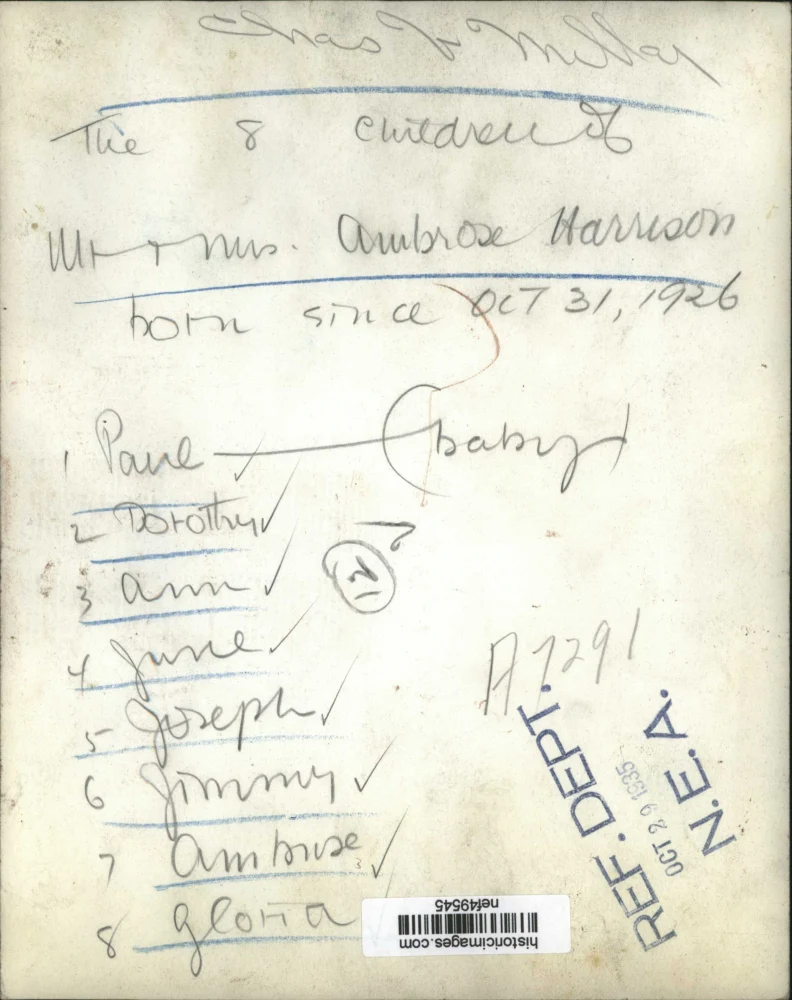 Chas V Millar
The 8 children of
Mr + Mrs. Ambrose Harrison
born since OCT 31, 1926
1 Paul — (baby)
2 Dorothy ✓
3 Ann ✓
4 June ✓
5 Joseph ✓
6 Jimmy ✓
7 Ambrose ✓
8 Gloria
A7291
REF. DEPT.
OCT 29 1935
N.E.A.
historicimages.com
nef49545